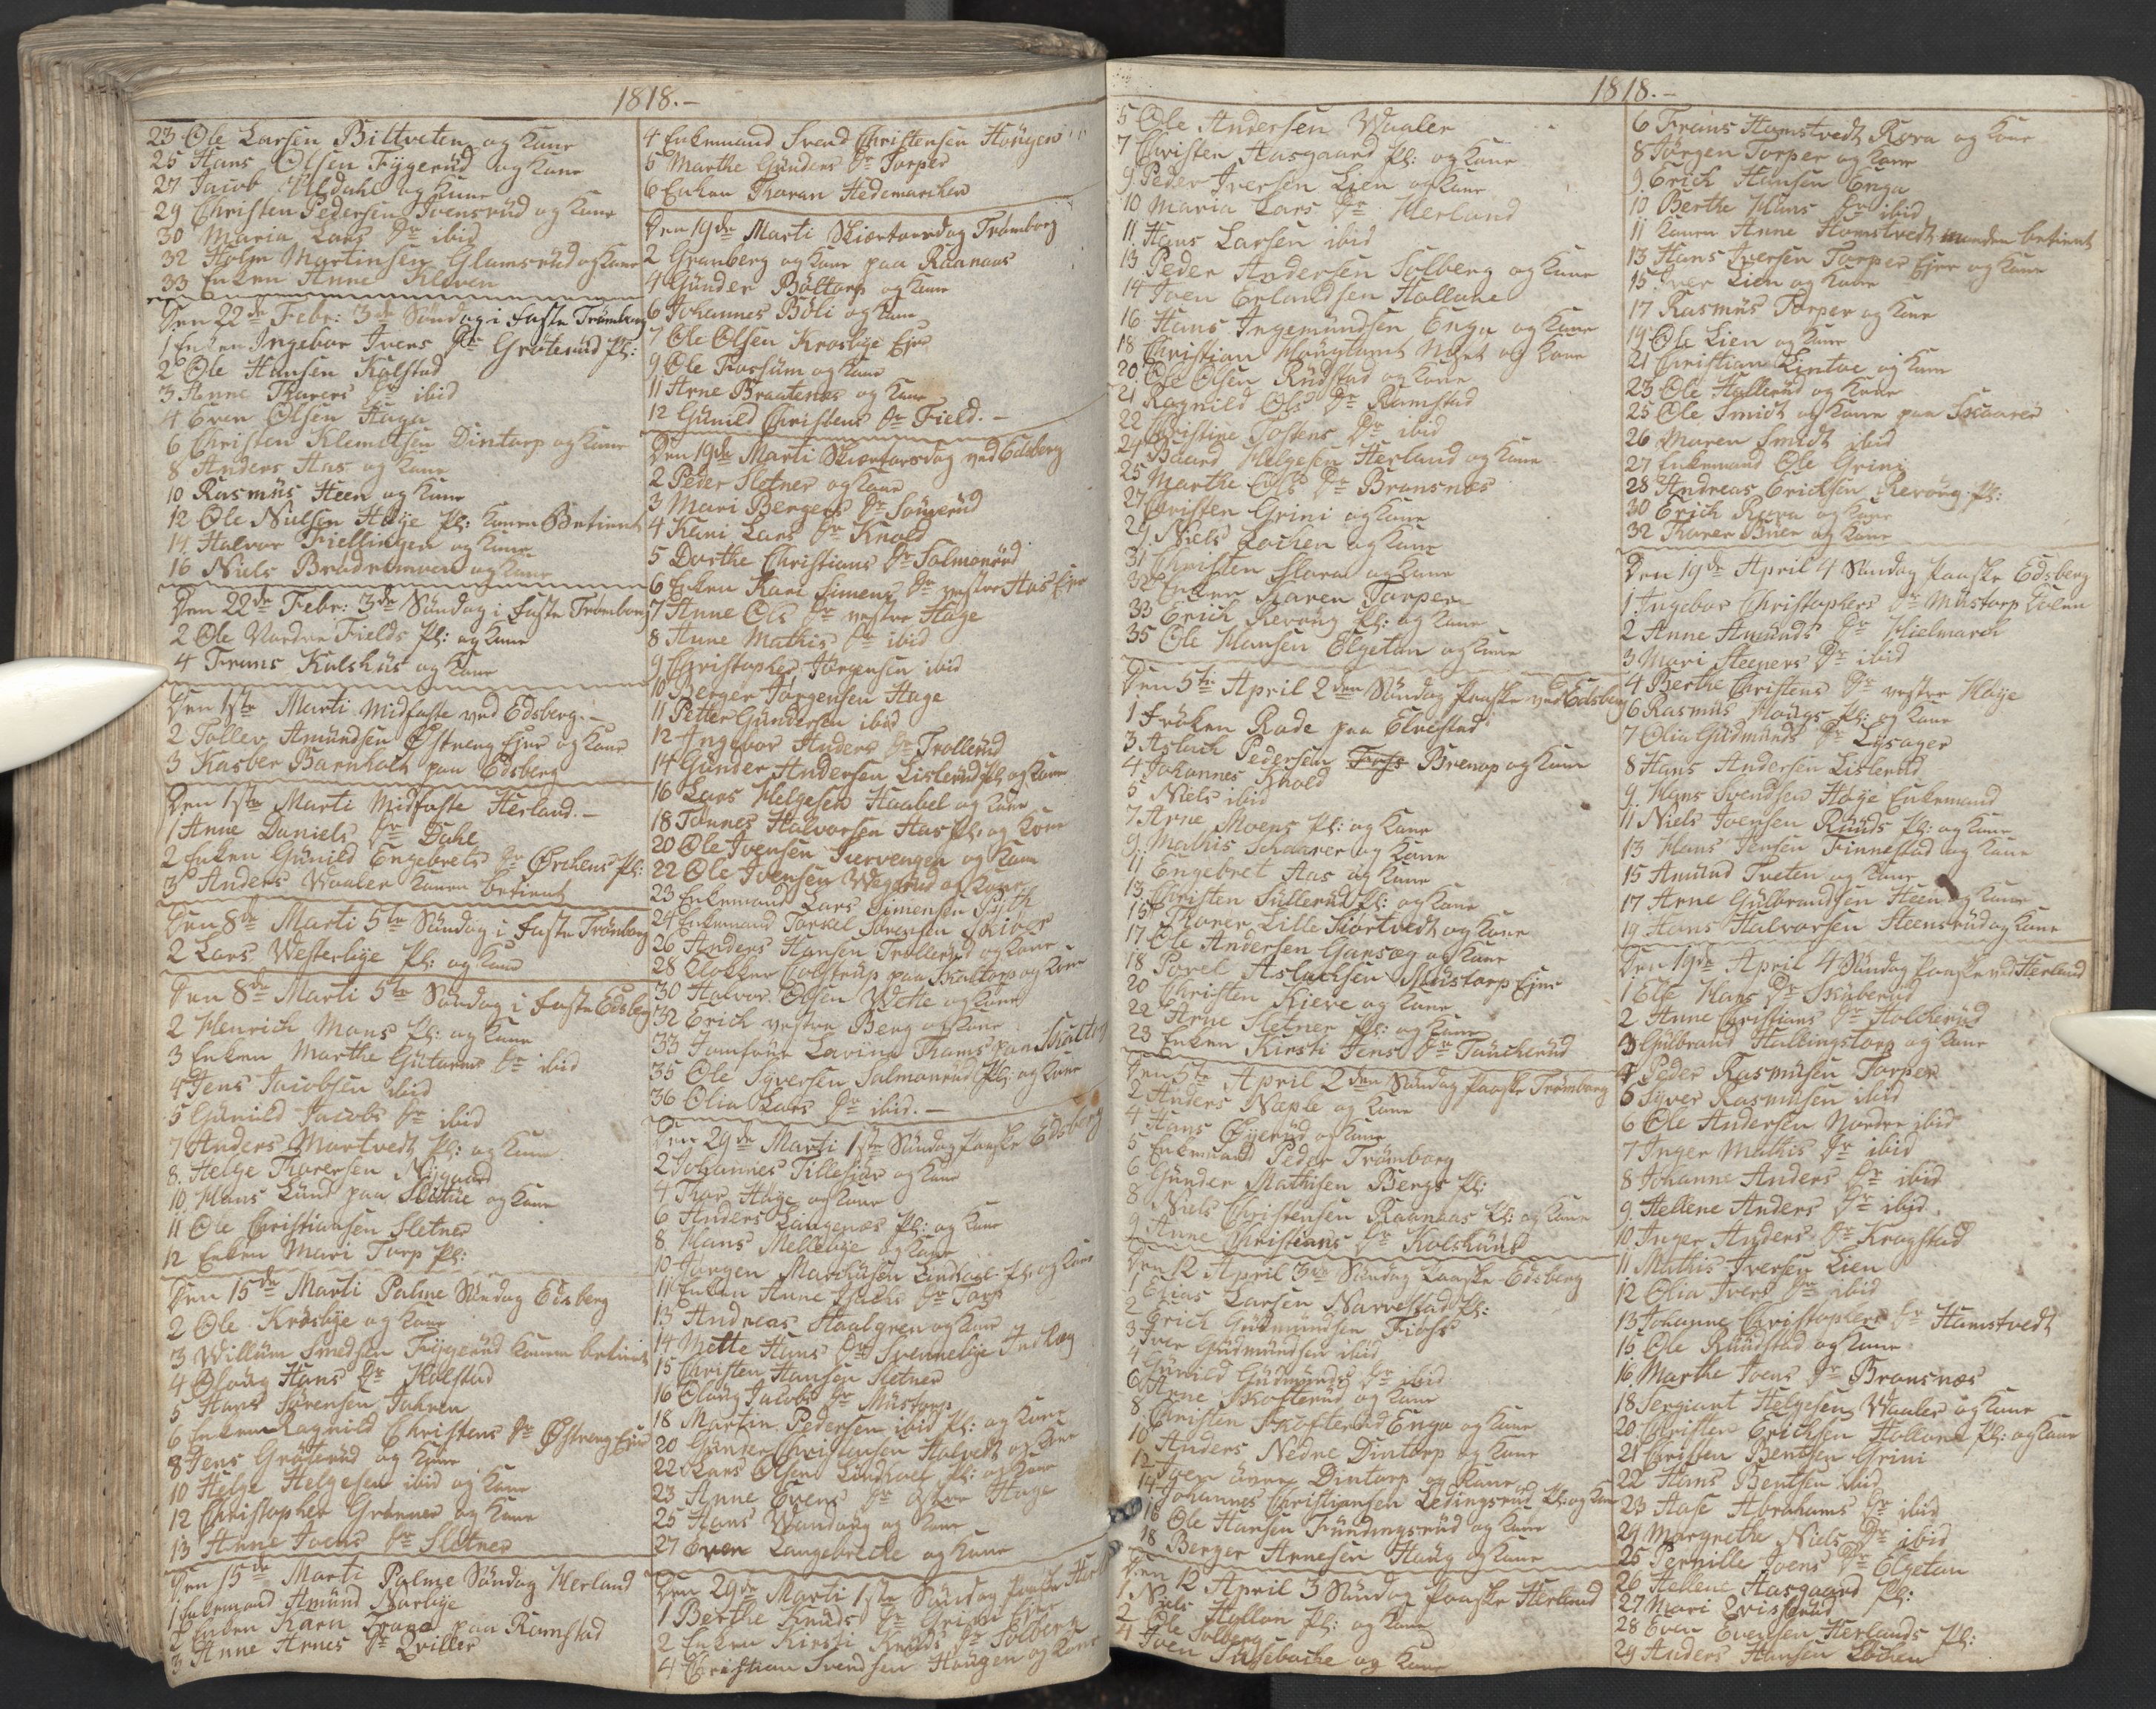 1818.-
23 Ole Larsen Biltveten og Kone
25 Hans Olsen Fygerud og Kone
27 Jacob Ulsdahl og Kone
29 Christen Pedersen Joensrud og Kone
30 Maria Lars Dr ibid
32 Holm Martinsen Glamsrud og Kone
33 Enken Anne Kleven
Den 22de Febr: 3de Søndag i Faste Trømborg
1 Enken Ingebor Ivers Dr Grøterud Pl:
2 Ole Hansen Kolstad
3 Anne Thorers Dr ibid
4 Even Olsen Haga
6 Christen Klemetsen Dintorp og Kone
8 Anders Aas og Kone
10 Rasmus Steen og Kone
12 Ole Nielsen Høye Pl: Konen Betient
14 Halvor Fiellingen og Kone
16 Niels og Kone
Den 22de Febr: 3de Søndag i Faste Trømborg
2 Ole Nordre Fields Pl: og Kone
4 Frans Kulshus og Kone
Den 1ste Marti Midfaste ved Edsberg.-
2 Tollev Amundsen Østreng Ejer og Kone
3 Kasber Barnholt paa Edsberg
Den 1ste Marti Midfaste Herland.-
1 Anne Daniels Dr Dahl
2 Enken Gunild Engebrets Dr Ørchens Pl:
3 Anders Waaler Konen betient
Den 8de Marti 5te Søndag i Faste Trømborg
2 Lars Westerbye Pl: og Kone
Den 8de Marti 5te Søndag i Faste Edsberg
2 Henrich Moens Pl: og Kone
3 Enken Marthe Gutorms Dr ibid
4 Jens Jacobsen ibid
5 Gunild Jacobs Dr ibid
7 Anders Mortvedt Pl: og Kone
8. Helge Thorersen Nygaard
10 Hans Lund paa Slitue og Kone
11 Ole Christiansen Sletner
12 Enken Mari Torp Pl:
Den 15de Marti Palme Søndag Edsberg
2 Ole Krosbye og Kone
3 Willum Smedsen Fygerud Konen betient
4 Oloug Hans Dr Kolstad
5 Hans Sørensen Jahren
6 Enken Ragnild Christens Dr Østreng Ejer
8 Jens Grøterud og Kone
10 Helge Helgesen ibid og Kone
12 Christopher Grønnes og Kone
13 Anne Joens Dr Sletner
Den 15de Marti Palme Søndag Herland
1 Enkemand Amund Norbye
2 Enken Karn Frans paa Ramstad
3 Anne Arnes Dr Qviller
4 Enkemand Svend Christensen Hougen
5 Marthe Gunders Dr Torper
6 Enken Thoran Hedemarchen
Den 19de Marti Skiærtorsdag Trømborg
2 Granberg og Kone paa Raanaas
4 Gunder Bøltorp og Kone
6 Johannes Bøli og Kone
7 Ole Olsen Krosbye Ejer
9 Ole Fossum og Kone
11 Arne Braatenes og Kone
12 Gunild Christens Dr Field.-
Den 19de Marti Skiærtorsdag ved Edsberg
2 Peder Sletner og Kone
3 Mari Bergers Dr
4 Kari Lars Dr Knold
5 Dorthe Christians Dr Salmonrud
6 Enken Kari Simens Dr vestre Aas Ejer
7 Anne Ols Dr vestre Hage
8 Anne Mathis Dr ibid
9 Christopher Jørgensen ibid
10 Berger Jørgensen Hage
11 Petter Gundersen ibid
12 Ingebor Anders Dr Trollerud
14 Gunder Andersen Lislerud Pl: og Kone
16 Lars Helgesen Haabel og Kone
18 Tønnes Halvorsen Aas Pl: og Kone
20 Ole Ivensen Turvengen og Kone
22 Ole Ivensen Wegerud og Kone
23 Enkemand Lars Simensen Pyth
24 Enkemand Torkel Sørensen
26 Anders Hansen Trollerud og Kone
28 Klokker Colstrup paa Skaltorp og Kone
30 Halvor Olsen Wette og Kone
32 Erich vestre Berg og Kone
33 Jomfrue Lovine Thams paa
35 Ole Syversen Salmonrud Pl: og Kone
36 Olia Lars Dr ibid.-
Den 29de Marti 1ste Søndag Paaske Edsberg
2 Johannes Tillesiør og Kone
4 Thor Høye og Kone
6 Anders Langenæs Pl: og Kone
8 Hans Mellebye og Kone
10 Jørgen Marchusen Lindhoel Pl: og Kone
11 Enken Anne Dr Torp
13 Andreas Staalgren og Kone
14 Mette Hans Dr Svennebye
15 Christen Hansen Sletner
16 Oloug Jacobs Dr Mustorp
18 Martin Pedersen ibid Pl: og Kone
20 Gunder Christensen Halvedt og Kone
22 Lars Olsen Lindhoel Pl: og Kone
23 Anne Evens Dr østre Hage
25 Hans Wandoug og Kone
27 Even Langebrecke og Kone
Den 29de Marti 1ste Søndag Paaske
1 Berthe Knuds Dr Grini Ejer
2 Enken Kirsti Knuds Dr Solberg
4 Christian Svendsen Hougen og Kone
1818.-
5 Ole Andersen Waaler
7 Christen Aasgaard Pl: og Kone
9. Peder Iversen Lien og Kone
10 Maria Lars Dr Herland
11 Hans Larsen ibid
13 Peder Andersen Solberg og Kone
14 Joen Erlandsen Hollene
16 Hans Ingemundsen Enga og Kone
18 Christian og Kone
20 Ole Olsen Rudstad og Kone
21 Ragnild Ols Dr Ramstad
22 Christine Tostens Dr ibid
24 Baard Helgesen Herland og Kone
25 Marthe Ols Dr Bransnæs
27 Christen Grini og Kone
29 Niels Lochen og Kone
31 Christen Slora og Kone
32 Enken Karen Torper
33 Erich Revoug Pl: og Kone
35 Ole Hansen Elgetun og Kone
Den 5te April 2den Søndag Paaske ved Edsberg
1 Frøken Rode paa Elvestad
3 Aslach Pedersen Brenop og Kone
4 Johannes Knold
5 Niels ibid
7 Arne Moens Pl: og Kone
9. Mathis Schaarer og Kone
11 Engebret Aas og Kone
13 Christen Sullerud Pl: og Kone
15 Thorer Lille Kiørtvedt og Kone
17 Ole Andersen Gansæg og Kone
18 Povel Aslachsen Mustorp Ejer
20 Christen Kieve og Kone
22 Arne Sletner Pl: og Kone
23 Enken Kirsti Jens Dr Taucherud
Den 5te April 2den Søndag Paaske Trømborg
2 Anders Næple og Kone
4 Hans Øyerud og Kone
5 Enkemand Peder Trømborg
6 Gunder Mathisen Bergs Pl:
8 Niels Christensen Raanaas Pl: og Kone
9 Anne Christians Dr Kolshuus
Den 12 April 3die Søndag Paaske Edsberg
1 Elias Larsen Narvestad Pl:
2 Erich Gudmundsen Fioss
3 Iver Gudmundsen ibid
4 Gunild Gudmunds Dr ibid
6 Arne Skofterud og Kone
8 Christen Skofterud Enga og Kone
10 Anders Nedre Dintorp og Kone
12 Iver øvre Dintorp og Kone
14 Johannes Christiansen Ledingsrud Pl: og Kone
16 Ole Hansen Fundingsrud og Kone
18 Berger Arnesen Haug og Kone
Den 12 April 3 Søndag Paaske Herland
1 Niels Hyllen Pl: og Kone
2 Ole Solberg
4 Iven Sæsebache og Kone
6 Frans Homstvedt Kora og Kone
8 Jørgen Torper og Kone
9. Erich Hansen Enga
10 Berthe Hans Dr ibid
11 Konen Anne Homstvedt manden betient
13 Hans Iversen Torper Ejer og Kone
15. Iver Lien og Kone
17 Rasmus Torper og Kone
19 Ole Lien og Kone
21 Christian Lintoe og Kone
23 Ole Hollerud og Kone
25 Ole Smidt og Kone paa Skaarer
26 Maren Smidt ibid
27 Enkemand Ole Grini
28 Andreas Ericksen Revoug Pl:
30 Erich Kora og Kone
32 Thorer Buer og Kone
Den 19de April 4 Søndag Paaske Edsberg
1 Ingebor Christophers Dr Mustorp Eien
2 Anne Amunds Dr Hielmark
3 Mari Steeners Dr ibid
4 Berthe Christens Dr vestre Høye
6 Rasmus Hougs Pl: og Kone
7 Olia Gudmunds Dr Lysager
8 Hans Andersen Lislerud
9. Hans Svendsen Høye Enkemand
11 Niels Joensen Ruuds Pl: og Kone
13 Hans Jensen Finnestad og Kone
15 Amund Tveten og Kone
17 Arne Gulbrandsen Heen og Kone
19 Hans Halvorsen Steensrud og Kone
Den 19de April 4 Søndag Paaske ved Herland
1 Else Hans Dr Skuberud
2 Anne Christians Dr Holcherud
3 Gulbrand Halbingstorp og Kone
4 Peder Rasmusen Torper
5 Syver Rasmussen ibid
6 Ole Andersen Nordre ibid
7 Inger Mathis Dr ibid
8 Johanne Anders Dr ibid
9. Hellene Anders Dr ibid
10 Inger Anders Dr Kragstad
11 Mathis Iversen Lien
12 Olia Ivers Dr ibid
13 Johanne Christophers Dr Hamstvedt
15 Ole Ruudstad og Kone
16 Marthe Joens Dr Bransnæs
18 Sergiant Helgesen Waaler og Kone
20 Christen Erichsen Hollene Pl: og Kone
21 Christen Bentsen Grini
22 Hans Bentsen ibid
23 Aase Abrahams Dr ibid
24 Margrethe Niels Dr ibid
25 Pernille Joens Dr Elgetun
26 Hellene Aasgaard Pl:
27 Mari Qvisterud
28 Even Evensen Herlands Pl:
29 Anders Hansen Lochen